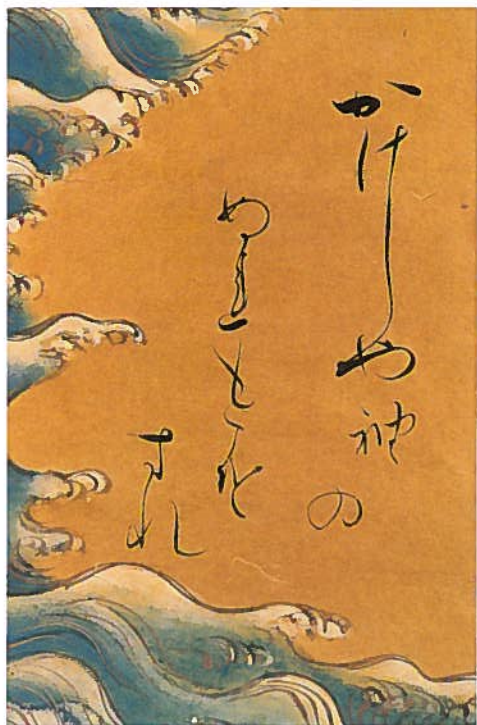 かけしや袖の
ぬれもこそ
すれ